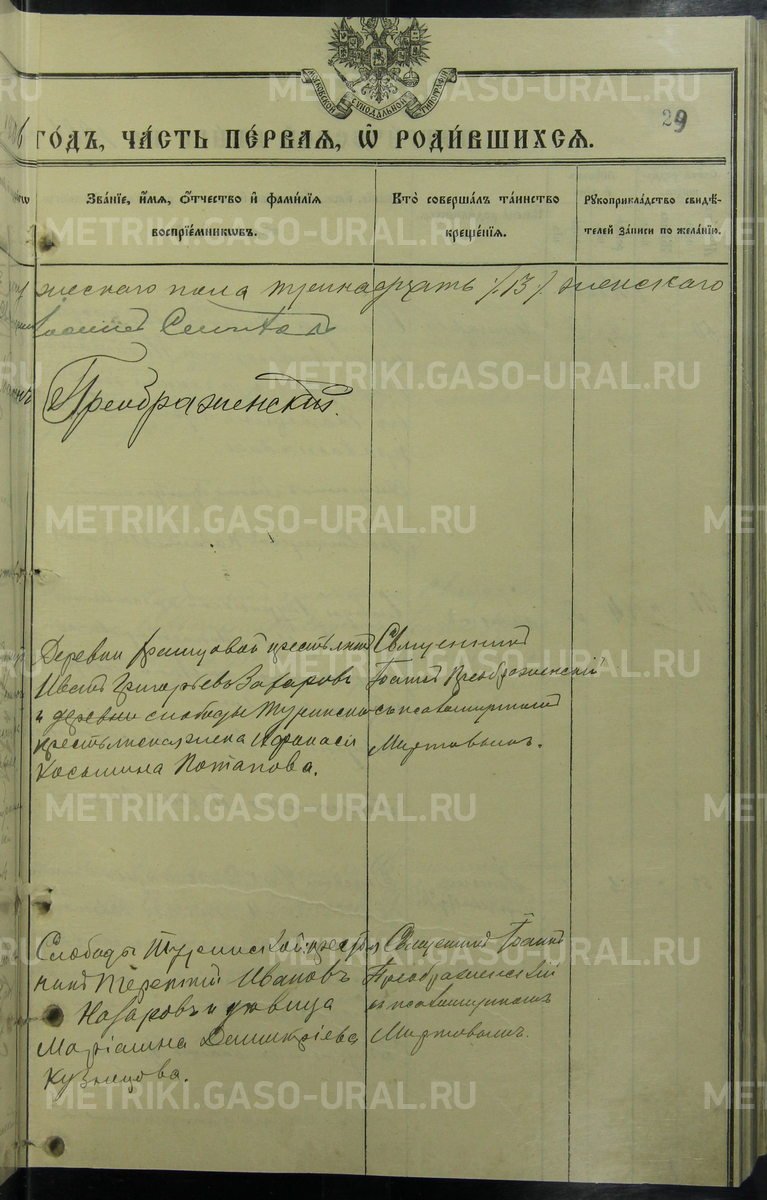 МОСКОВСКОЙ СУНОДАЛЬНОЙ ТИПОГРАФІИ
29
годъ, часть пе́рвая, ѡ҆ роди́вшихсѧ.
Зва́нїе, и҆́мѧ, ѻ҆́тчество и҆ фами́лїѧ воспрїе́мникѡвъ.
Кто̀ соверша́лъ та́инство креще́нїѧ.
Рꙋкоприкла́дство свидѣ́телей за́писи по жела́нїю.
жескаго пола тринадцать /13/ женскаго
Преображенскій.
Деревни крестьянинъ
Иванъ Григорьевъ Захаровъ
и деревни слободы Туринской
крестьянская жена
Косьмина Потапова.
Священникъ
Іоаннъ Преображенскій
съ псаломщикомъ
Мартовымъ.
Слободы Туринской крестья
нинъ Терентій Ивановъ
Назаровъ и дѣвица
Маріамна Димитріева
Кузнецова.
Священникъ Іоаннъ
Преображенскій
съ псаломщикомъ
Мартовымъ.
METRIKI.GASO-URAL.RU